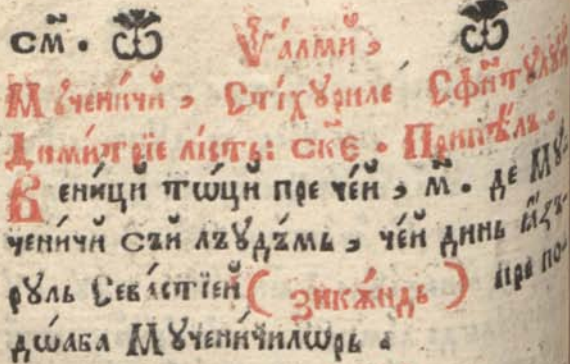 см҃. Ѱалмй,
Мꙋчени́чй, Стїхꙋриле Сфн҃тꙋлꙋй
Дими́трїе лі́стъ: ске҃. Припѣ́лъ.
Вени́ци тѡ́ци пре че́й, м҃. де Мꙋ-
чени́чй съй лъꙋдъ́мь, че́й динь
рꙋль Сева́стїей (зикѫ́ндь) пре по-
дѡ́аба Мꙋчени́чилѡрь